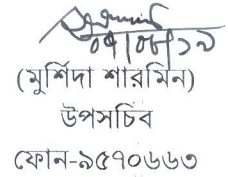 ০৭/০৮/১৯
(মুর্শিদা শারমিন)
উপসচিব
ফোন-৯৫৭০৬৬৩